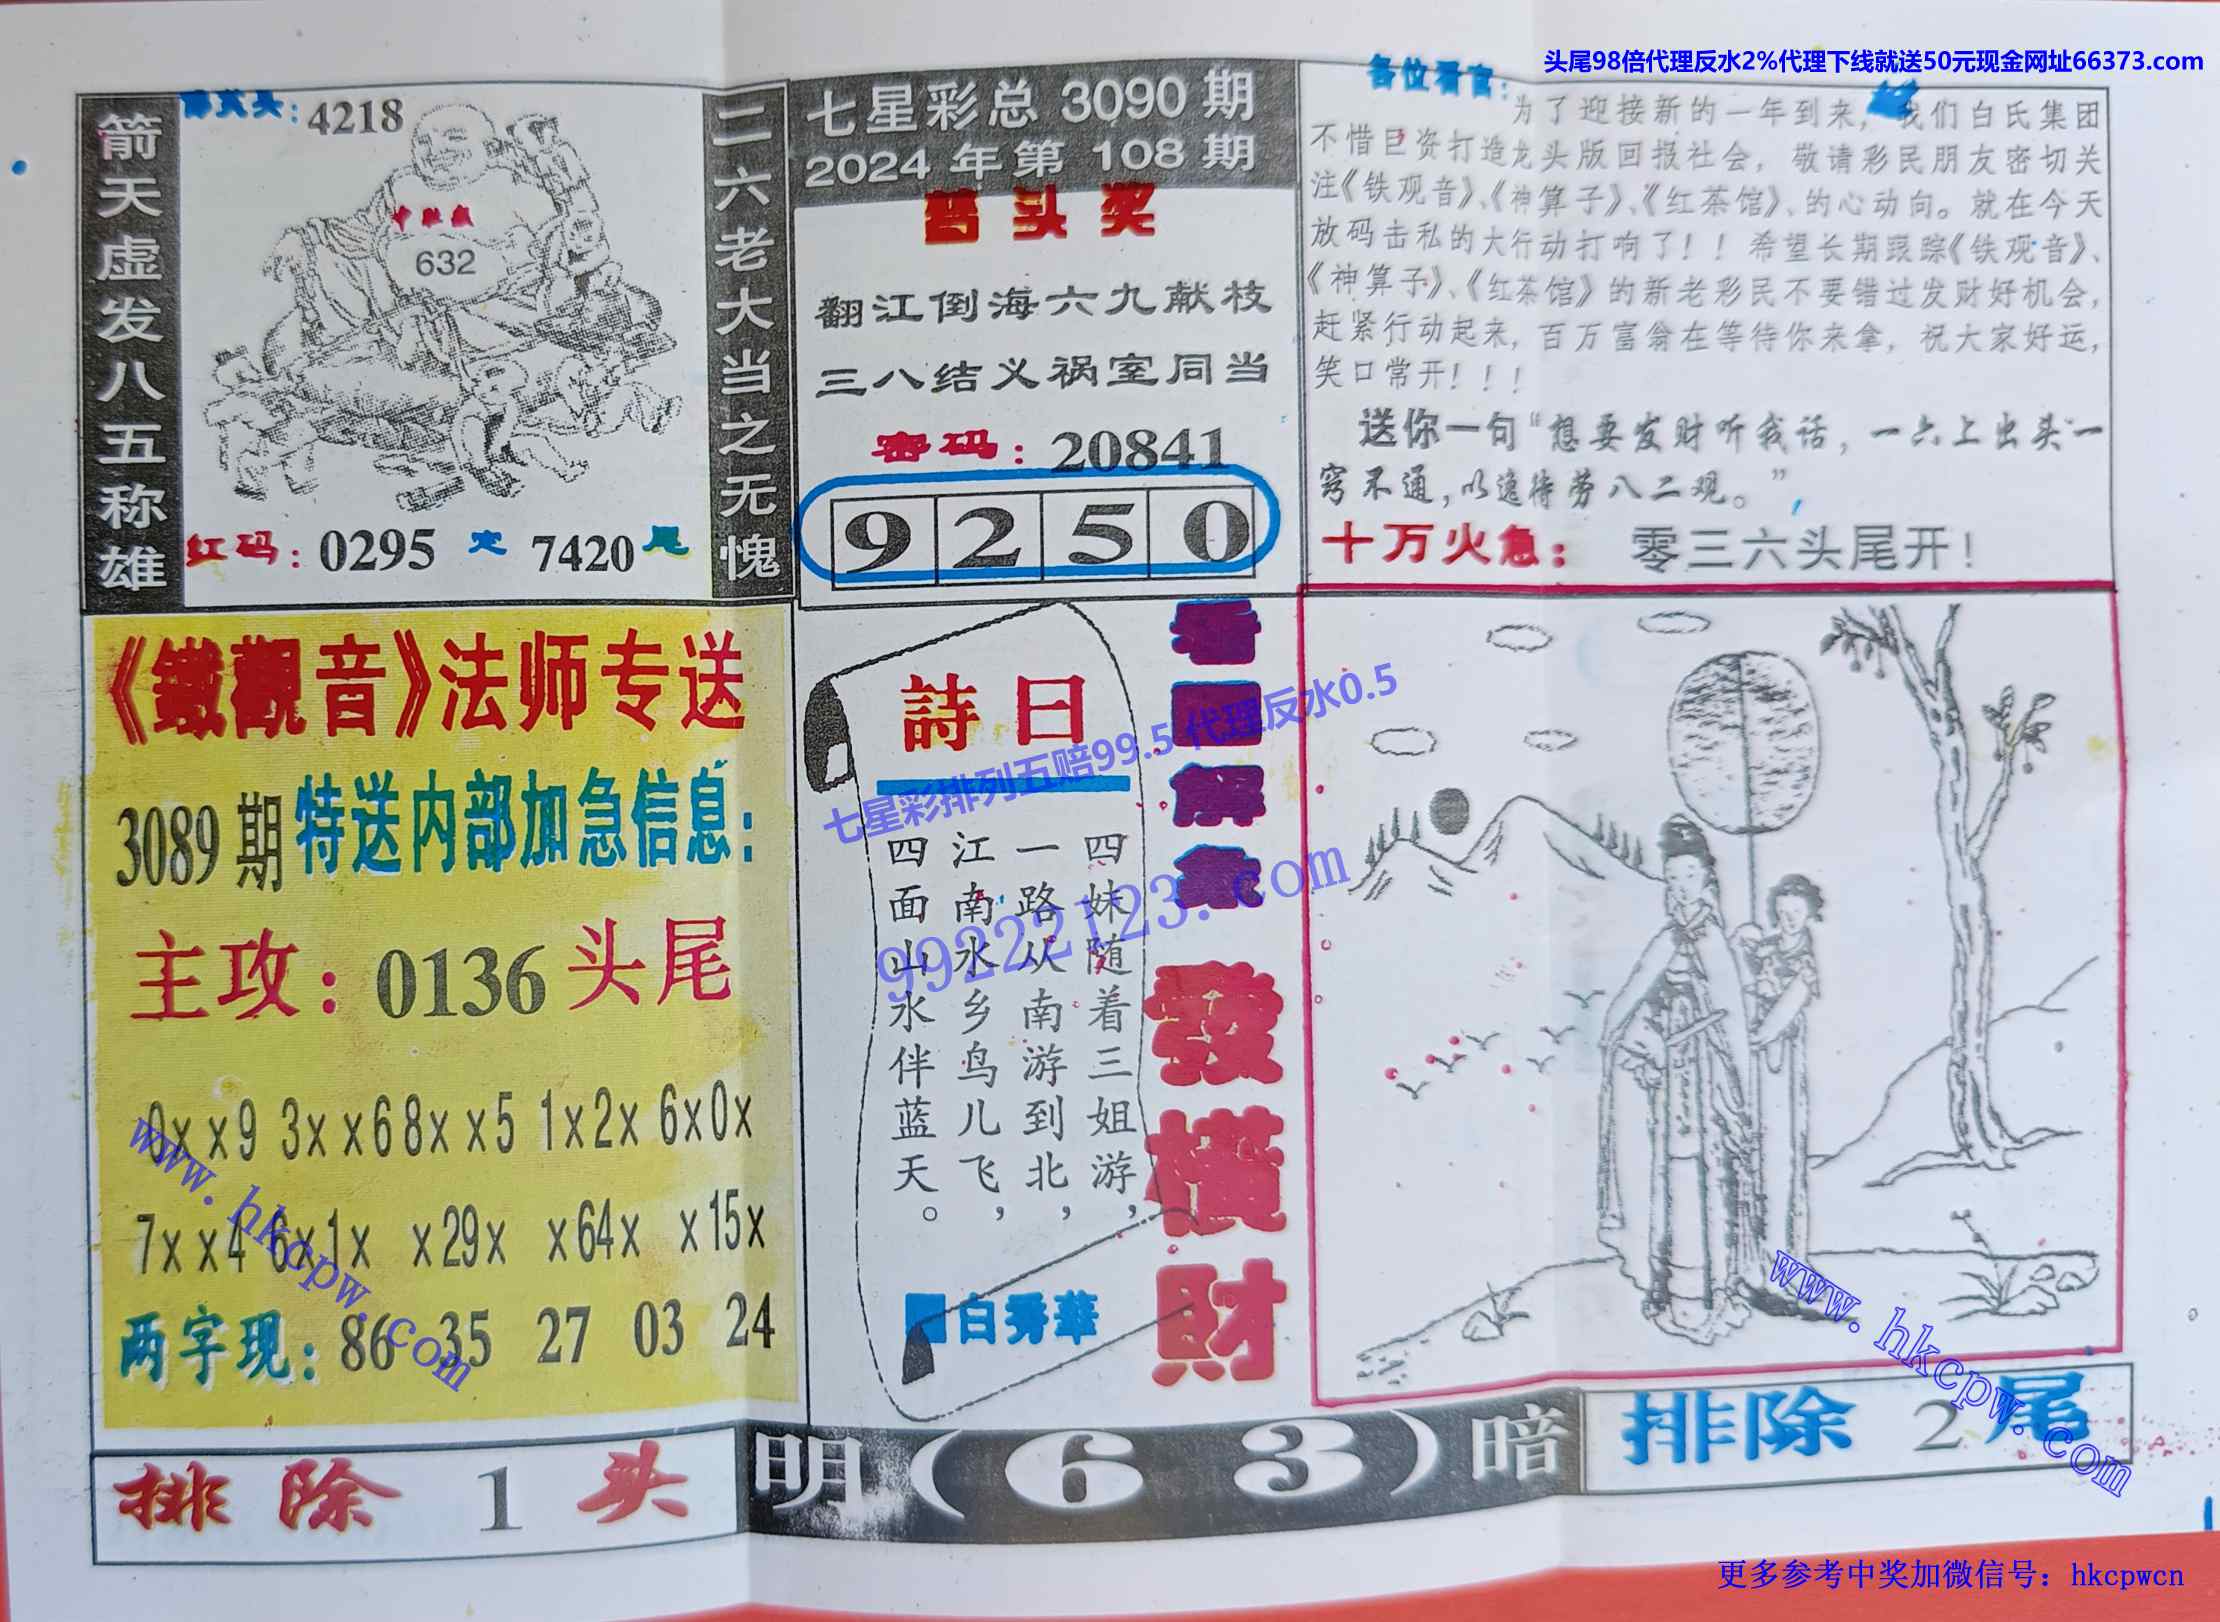 头尾98倍代理反水2%代理下线就送50元现金网址66373.com
箭天虚发八五称雄
4218
632
红码：0295 定 7420 尾
二六老大当之无愧
七星彩总 3090 期
2024 年第 108 期
头奖
翻江倒海六九献枝
三八结义祸室同当
密码：20841
9 2 5 0
各位看官：
为了迎接新的一年到来，我们白氏集团
不惜巨资打造龙头版回报社会，敬请彩民朋友密切关
注《铁观音》、《神算子》、《红茶馆》、的心动向。就在今天
放码击私的大行动打响了！！希望长期跟踪《铁观音》、
《神算子》、《红茶馆》的新老彩民不要错过发财好机会，
赶紧行动起来，百万富翁在等待你来拿，祝大家好运，
笑口常开！！！
送你一句“想要发财听我话，一六上出头一
窍不通，以逸待劳八二观。”
十万火急：零三六头尾开！
《鐵觀音》法师专送
3089 期 特送内部加急信息：
主攻：0136 头尾
0××9 3××6 8××5 1×2× 6×0×
7××4 6×1× ×29× ×64× ×15×
两字现：86 35 27 03 24
詩曰
四妹随着三姐游，
一路从南游到北，
江南水乡鸟儿飞，
四面山水伴蓝天。
白秀華
看图解象
發橫財
七星彩排列五赔99.5 代理反水0.5
99222123.com
www.hkcpw.com
www.hkcpw.com
排除 1 头
明（63）暗
排除 2 尾
更多参考中奖加微信号：hkcpwcn